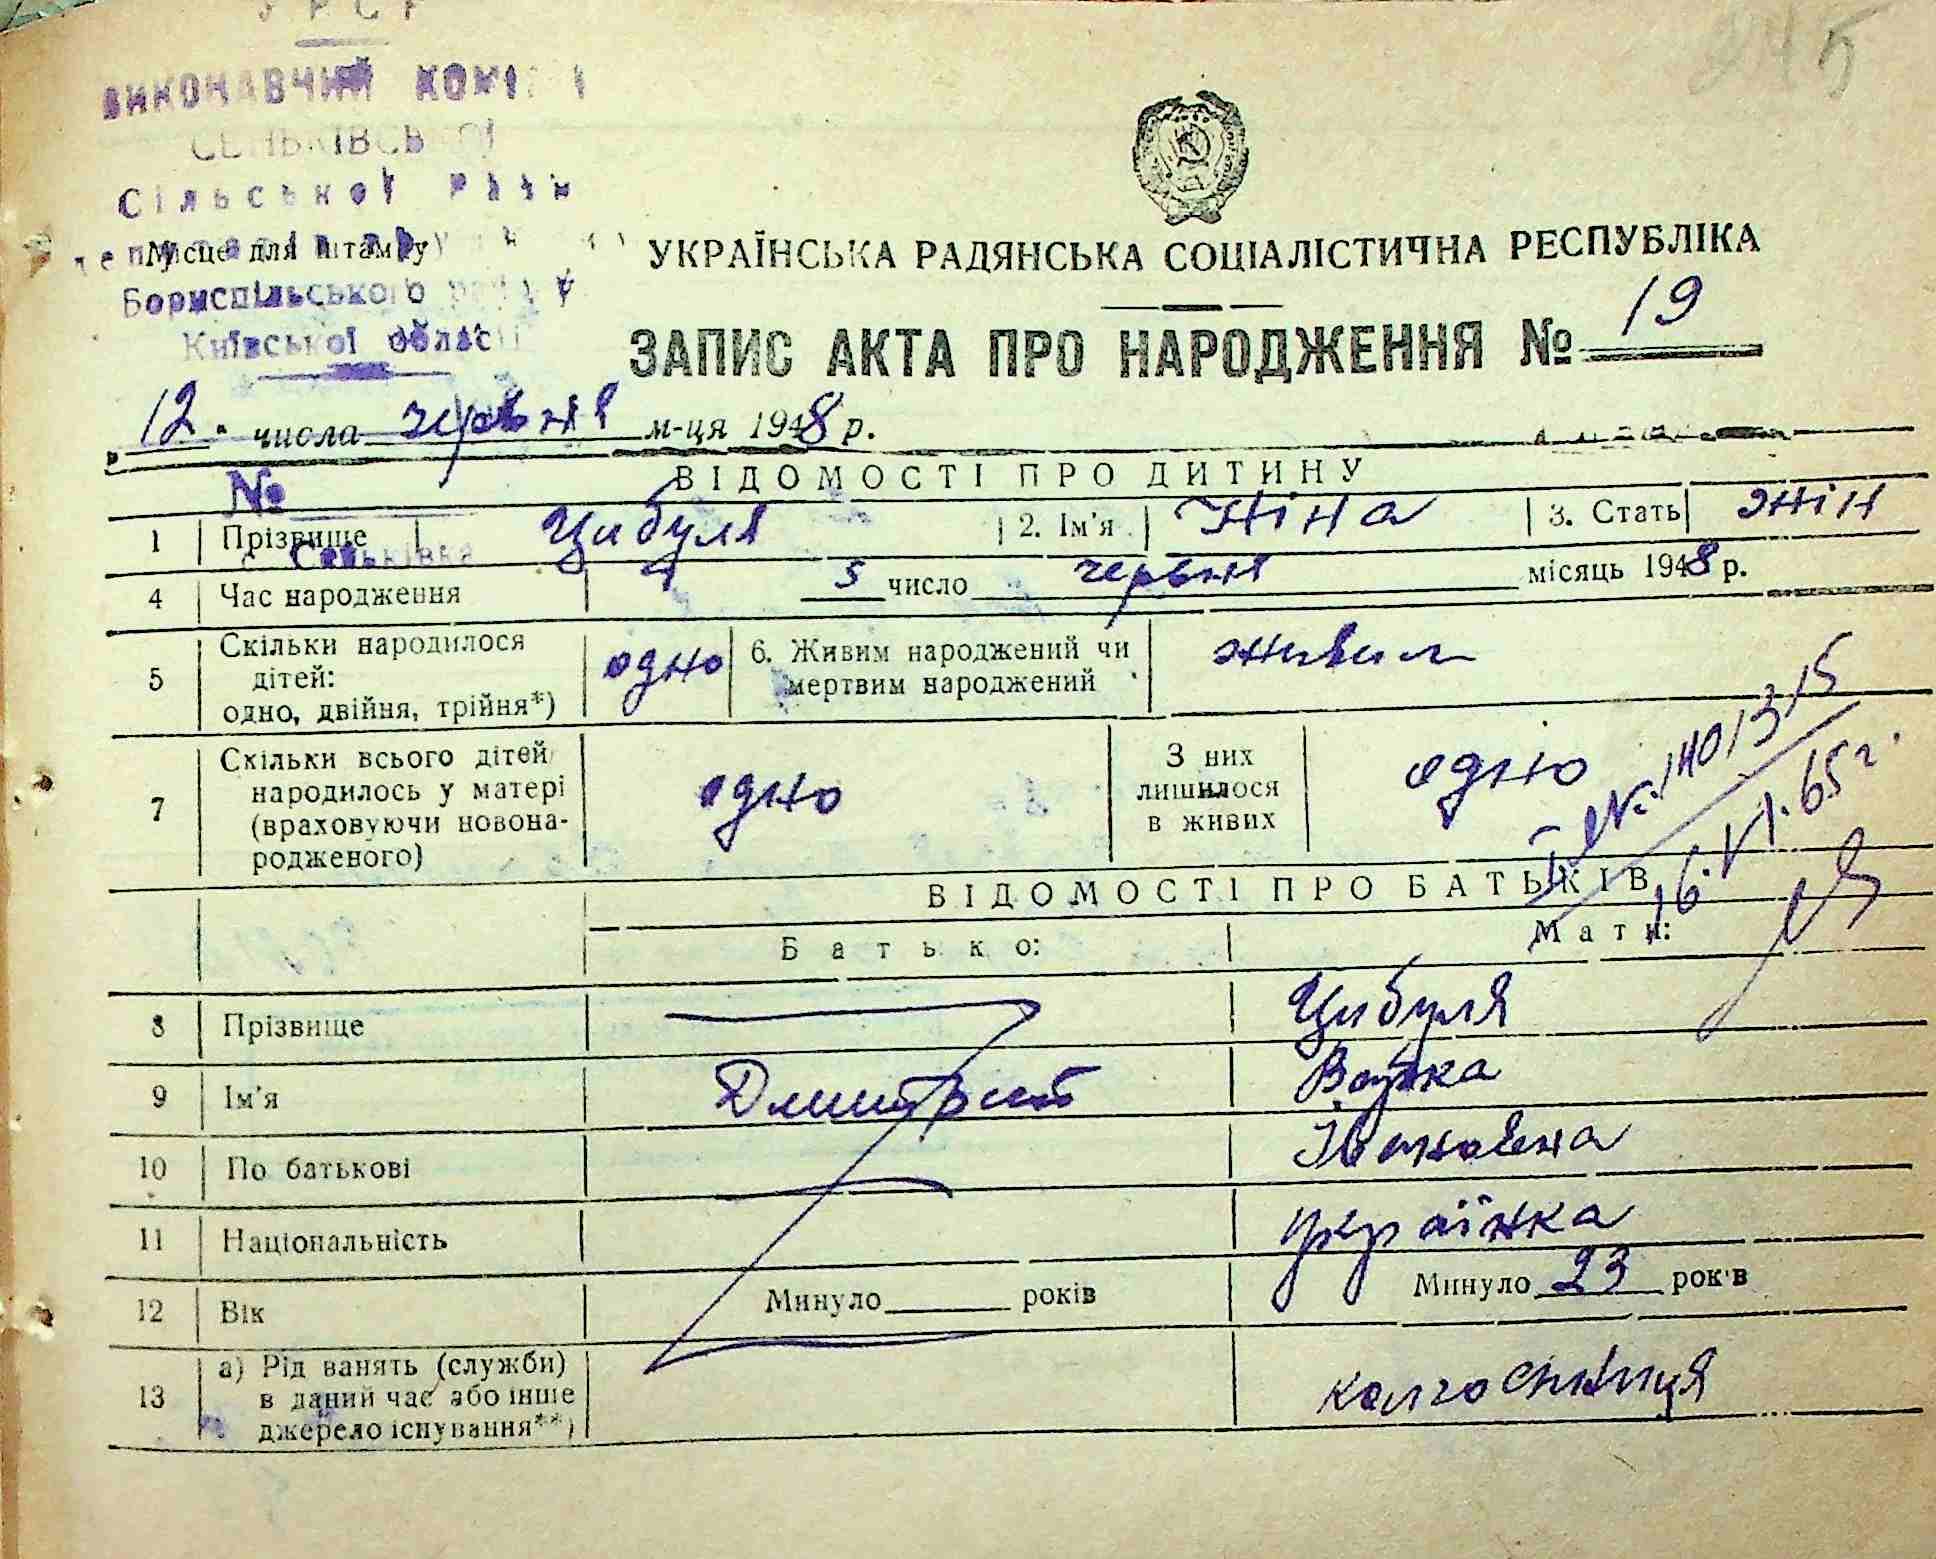 УРСР
ВИКОНАВЧИЙ КОМІ
СЕНЬКІВСЬКОЇ
Сільської Ради
Місце для штампу
Бориспільського р
Київської області
№
с. Сеньківка
245
УКРАЇНСЬКА РАДЯНСЬКА СОЦІАЛІСТИЧНА РЕСПУБЛІКА
ЗАПИС АКТА ПРО НАРОДЖЕННЯ № 19
12. числа червня м-ця 1948 р.
ВІДОМОСТІ ПРО ДИТИНУ
1 Прізвище Цибуля 2. Ім'я Ніна 3. Стать жін
4 Час народження 5 число червня місяць 1948 р.
5 Скільки народилося дітей: одно, двійня, трійня*) одно 6. Живим народжений чи мертвим народжений живим
7 Скільки всього дітей народилось у матері (враховуючи новонародженого) одно З них лишилося в живих одно
№ 140/315
16.VI.65 г.
ВІДОМОСТІ ПРО БАТЬКІВ
Батько: Мати:
8 Прізвище Цибуля
9 Ім'я Дмитрит
10 По батькові Івановна
11 Національність українка
12 Вік Минуло років Минуло 23 років
13 а) Рід занять (служби) в даний час або інше джерело існування**) колгоспниця